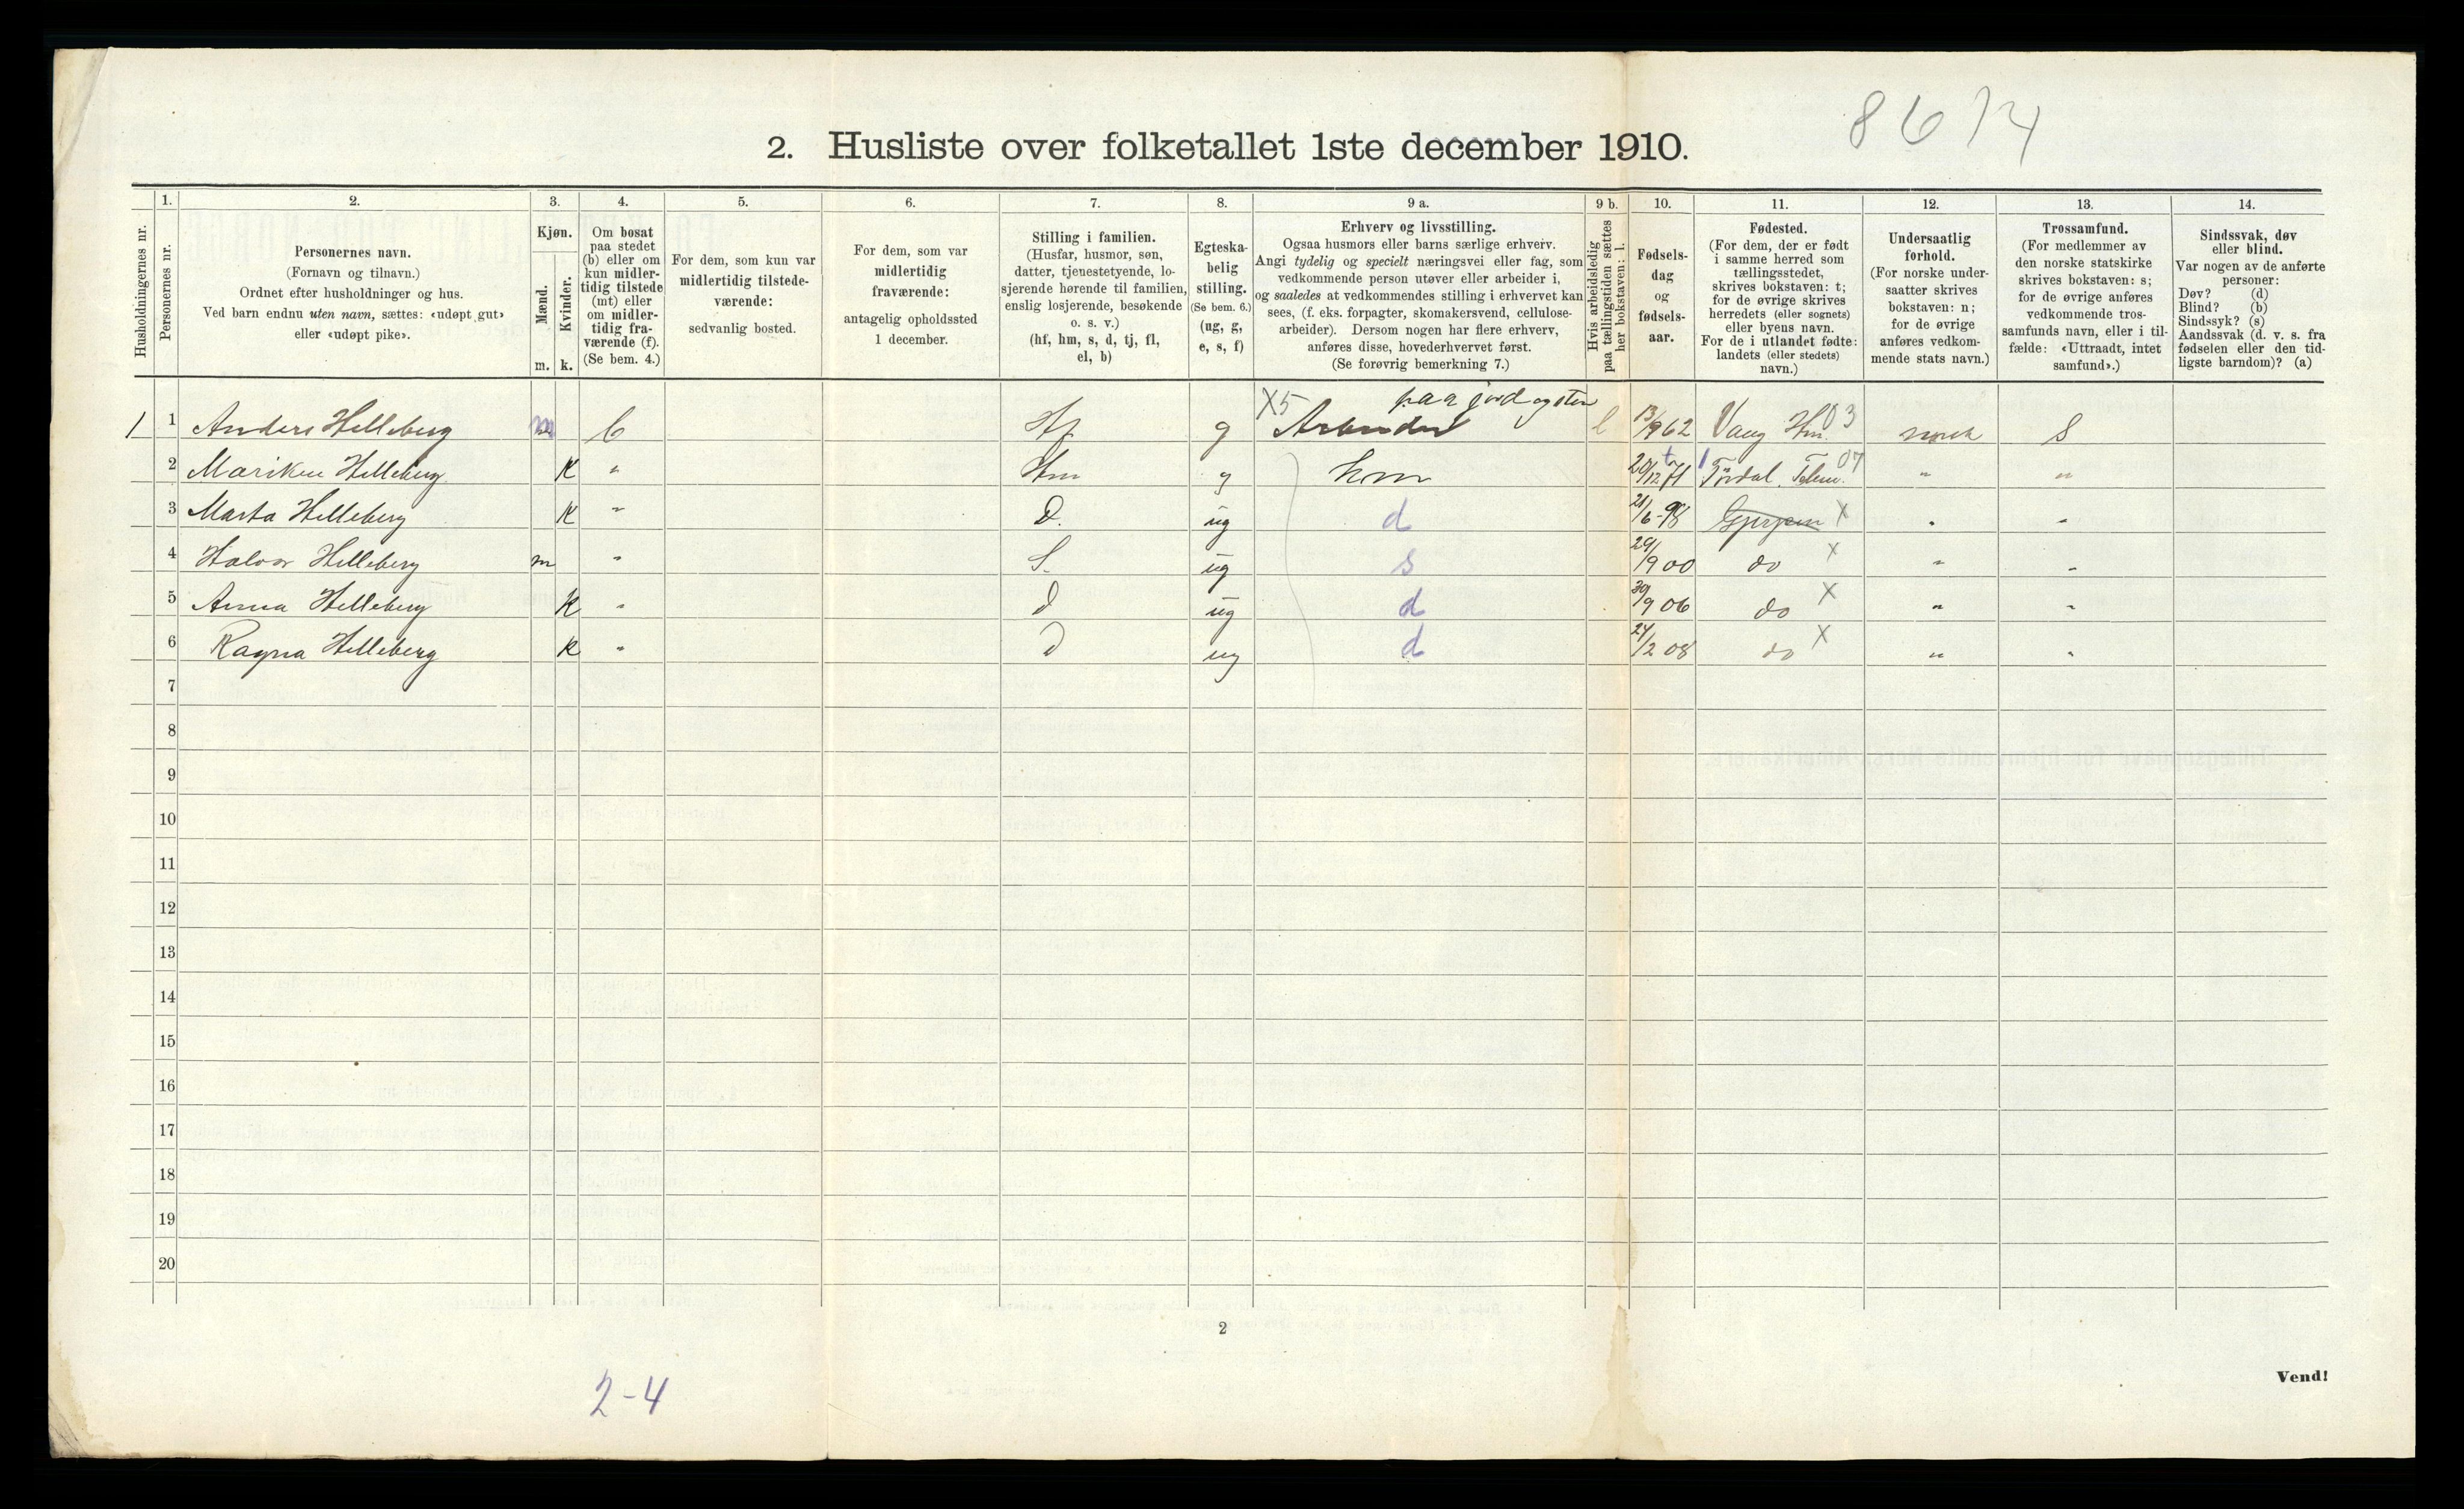 8674
2. Husliste over folketallet 1ste december 1910.
Husholdningernes nr.
1.
Personernes nr.
2.
Personernes navn.
(Fornavn og tilnavn.)
Ordnet efter husholdninger og hus.
Ved barn endnu uten navn, sættes: «udøpt gut»
eller «udøpt pike».
3.
Kjøn.
Mænd.
Kvinder.
m. k.
4.
Om bosat
paa stedet
(b) eller om
kun midler-
tidig tilstede
(mt) eller
om midler-
tidig fra-
værende (f).
(Se bem. 4.)
5.
For dem, som kun var
midlertidig tilstede-
værende:
sedvanlig bosted.
6.
For dem, som var
midlertidig
fraværende:
antagelig opholdssted
1 december.
7.
Stilling i familien.
(Husfar, husmor, søn,
datter, tjenestetyende, lo-
sjerende hørende til familien,
enslig losjerende, besøkende
o. s. v.)
(hf, hm, s, d, tj, fl,
el, b)
8.
Egteska-
belig
stilling.
(Se bem. 6.)
(ug, g,
e, s, f)
9 a.
Erhverv og livsstilling.
Ogsaa husmors eller barns særlige erhverv.
Angi tydelig og specielt næringsvei eller fag, som
vedkommende person utøver eller arbeider i,
og saaledes at vedkommendes stilling i erhvervet kan
sees, (f. eks. forpagter, skomakersvend, cellulose-
arbeider). Dersom nogen har flere erhverv,
anføres disse, hovederhvervet først.
(Se forøvrig bemerkning 7.)
9 b.
Hvis arbeidsledig
paa tællingstiden sættes
her bokstaven: l.
10.
Fødsels-
dag
og
fødsels-
aar.
11.
Fødested.
(For dem, der er født
i samme herred som
tællingsstedet,
skrives bokstaven: t;
for de øvrige skrives
herredets (eller sognets)
eller byens navn.
For de i utlandet fødte:
landets (eller stedets)
navn.)
12.
Undersaatlig
forhold.
(For norske under-
saatter skrives
bokstaven: n;
for de øvrige
anføres vedkom-
mende stats navn.)
13.
Trossamfund.
(For medlemmer av
den norske statskirke
skrives bokstaven: s;
for de øvrige anføres
vedkommende tros-
samfunds navn, eller i til-
fælde: «Uttraadt, intet
samfund».)
14.
Sindssvak, døv
eller blind.
Var nogen av de anførte
personer:
Døv? (d)
Blind? (b)
Sindssyk? (s)
Aandssvak (d. v. s. fra
fødselen eller den tid-
ligste barndom)? (a)
X5 paa jord og sten
1 1 Anders Helleberg m b Hf g Arbeider l 13/9 62 Vang Hm. 03 norsk S
2 Mariken Helleberg K " Hm g hm 20/12 71 Tørdal. Telem. 07 " "
3 Marta Helleberg K " D. ug d 21/6-98 Gjerpen X " "
4 Halvor Helleberg m " S. ug s 29/9 00 do X " "
5 Anna Helleberg K " d ug d 30/9 06 do X " "
6 Ragna Helleberg K " d ug d 24/2 08 do X " "
7
8
9
10
11
12
13
14
15
16
17
18
19
20
2
Vend!
2-4